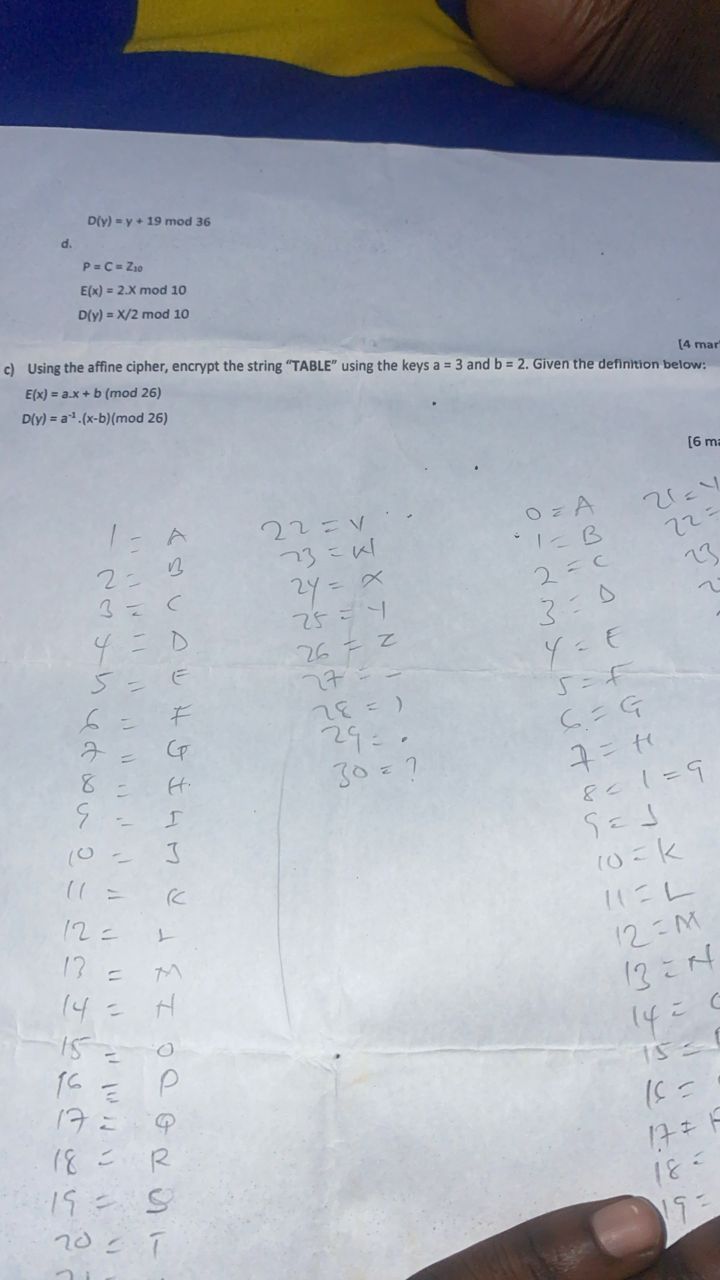 D(y) = y + 19 mod 36
d.
P = C = Z₁₀
E(x) = 2.X mod 10
D(y) = X/2 mod 10
[4 mar
c) Using the affine cipher, encrypt the string "TABLE" using the keys a = 3 and b = 2. Given the definition below:
E(x) = a.x + b (mod 26)
D(y) = a⁻¹.(x-b)(mod 26)
[6 ma
1 = A
2 = B
3 = C
4 = D
5 = E
6 = F
7 = G
8 = H
9 = I
10 = J
11 = K
12 = L
13 = M
14 = N
15 = O
16 = P
17 = Q
18 = R
19 = S
20 = T
21
22 = V
23 = W
24 = X
25 = Y
26 = Z
27 = -
28 = )
29 = .
30 = ?
0 = A
1 = B
2 = C
3 = D
4 = E
5 = F
6 = G
7 = H
8 = I = 9
9 = J
10 = K
11 = L
12 = M
13 = N
14 =
15 =
16 =
17 =
18 =
19 =
22 =
23